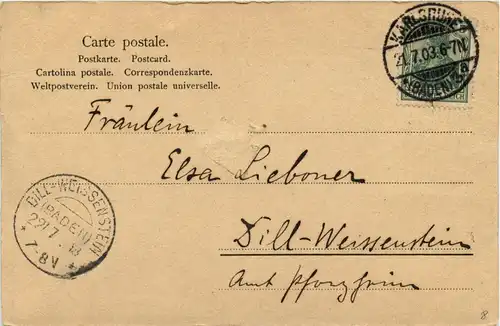 Carte postale.
Postkarte. Postcard.
Cartolina postale. Correspondenzkarte.
Weltpostverein. Union postale universelle.
KARLSRUHE
7.03.6-7N.
(BADEN)
Fräulein
Elsa Lieboner
DILL-WEISSENSTEIN
(BADEN)
22/7
7-8V
Dill-Weissenstein
Amt Pforzheim
8